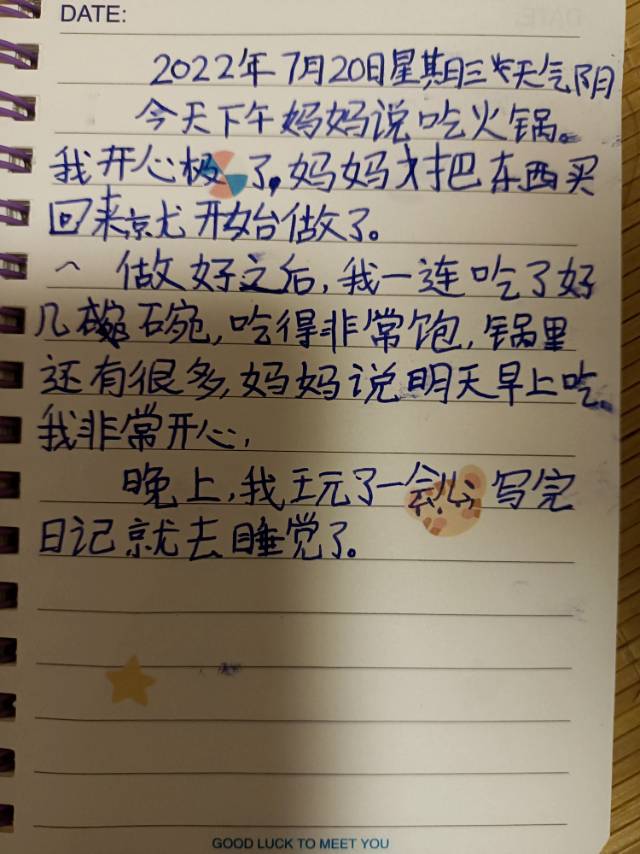 DATE:
2022年7月20日星期三 天气阴
今天下午妈妈说吃火锅。
我开心极了,妈妈才把东西买
回来就开始做了。
做好之后,我一连吃了好
几碗,吃得非常饱,锅里
还有很多,妈妈说明天早上吃。
我非常开心,
晚上,我玩了一会,写完
日记就去睡觉了。
GOOD LUCK TO MEET YOU